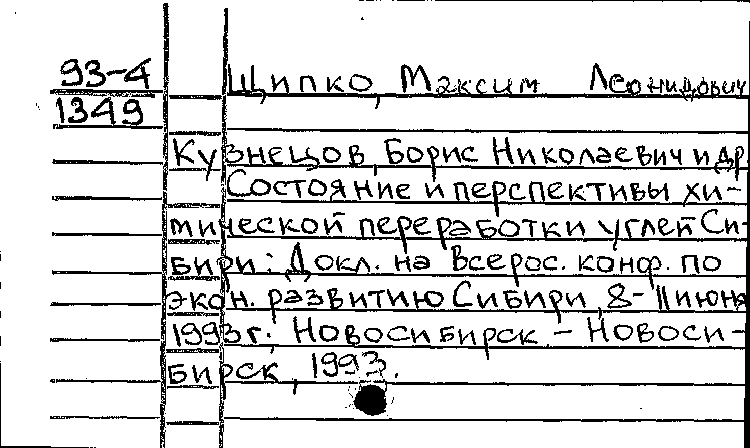 93-4 Щипко, Максим Леонидович
1349
Кузнецов, Борис Николаевич и др
Состояние и перспективы хи-
мической переработки углей Си-
бири: Докл. на Всерос. конф. по
экон. развитию Сибири, 8-11 июня
1993 г., Новосибирск. - Новоси-
бирск, 1993.